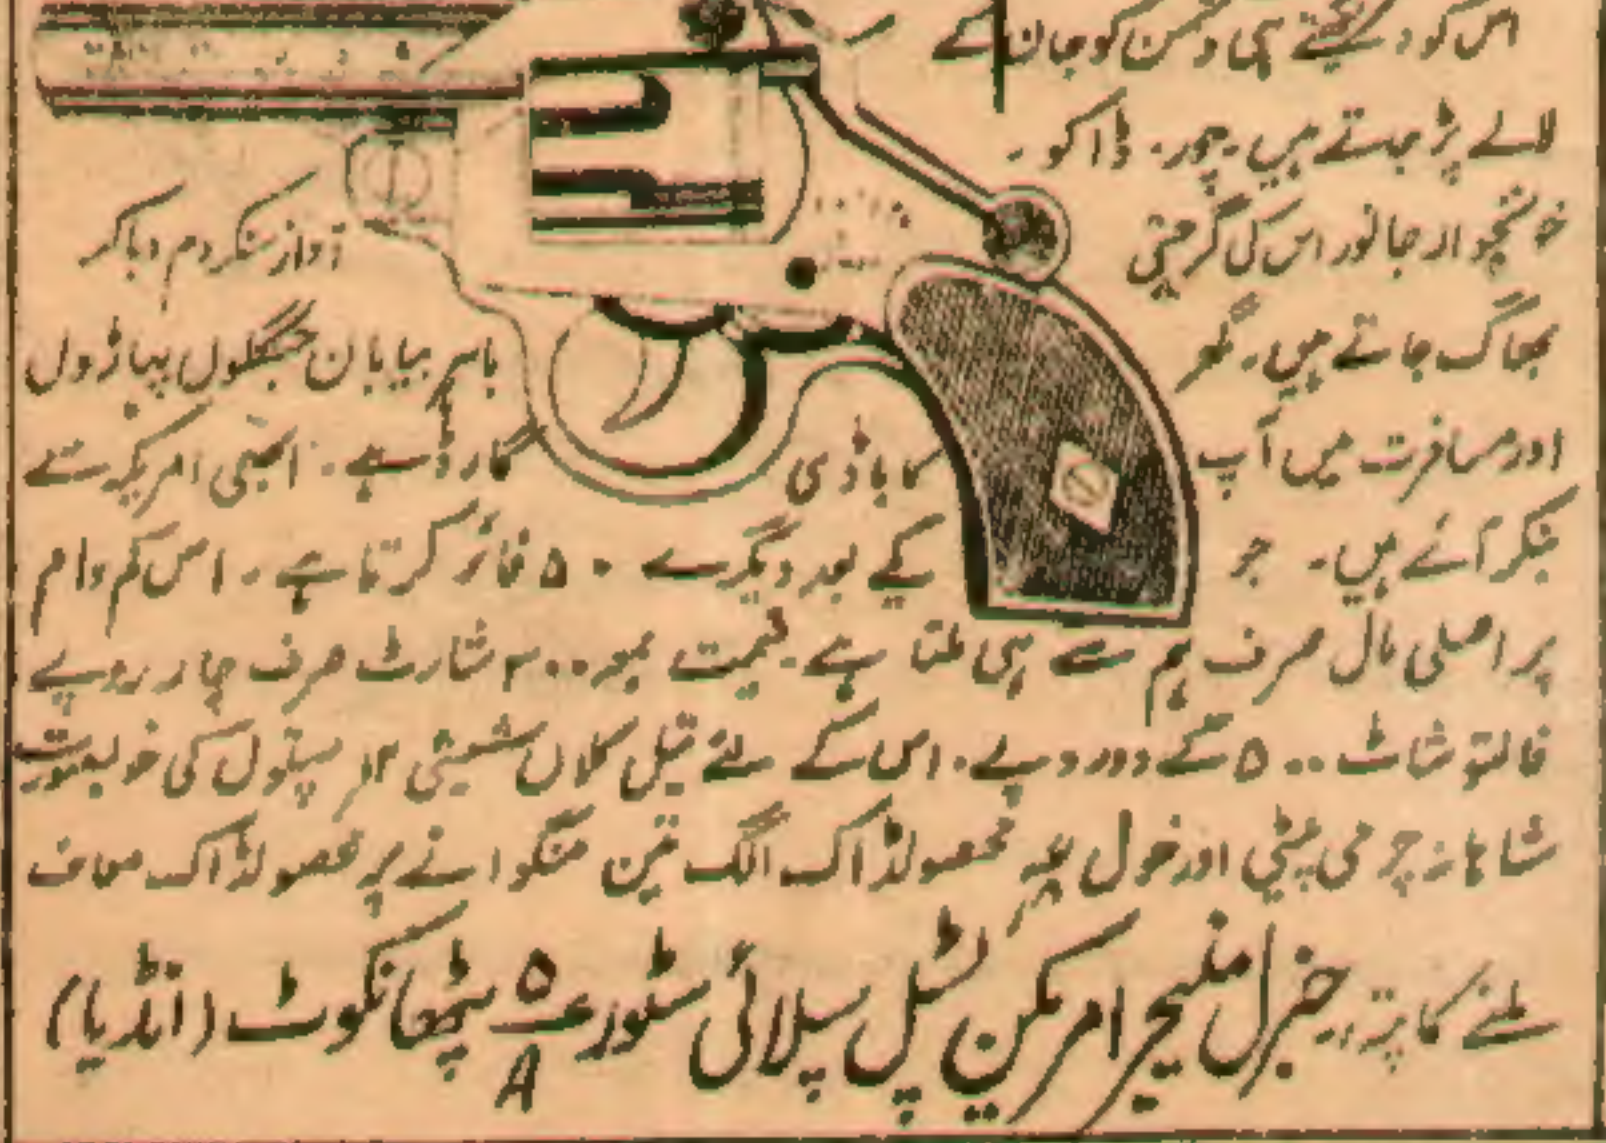 اس کو دیکھتے ہی دشمن کو جان کے
لالے پڑ جاتے ہیں۔ چور۔ ڈاکو۔
خونخوار جانور اس کی گرجتی آواز سنکر دم دباکر
بھاگ جاتے ہیں۔ گھر باہر بیابان جنگلوں پہاڑوں
اور مسافرت میں آپ کا باڈی گارڈ ہے۔ ابھی امریکہ سے
بنکر آئے ہیں۔ جو یکے بعد دیگرے ۵۰ فائر کرتا ہے۔ اس کم دام
پر اصلی مال صرف ہم سے ہی ملتا ہے۔ قیمت بمعہ ۲۰۰ شارٹ صرف چار روپے
فالتو شاٹ ۵۰۰ کے دو روپے۔ اس کے لئے تیل کلاں شیشی ۱۲؍ پستول کی خوبصورت
شاہانہ چرمی پیٹی اور خول محصولڈاک الگ تین منگوانے پر محصولڈاک معاف
ملنے کا پتہ:۔ جنرل منیجر امریکن پسٹل سپلائی سٹور ۵/A پٹھانکوٹ (انڈیا)